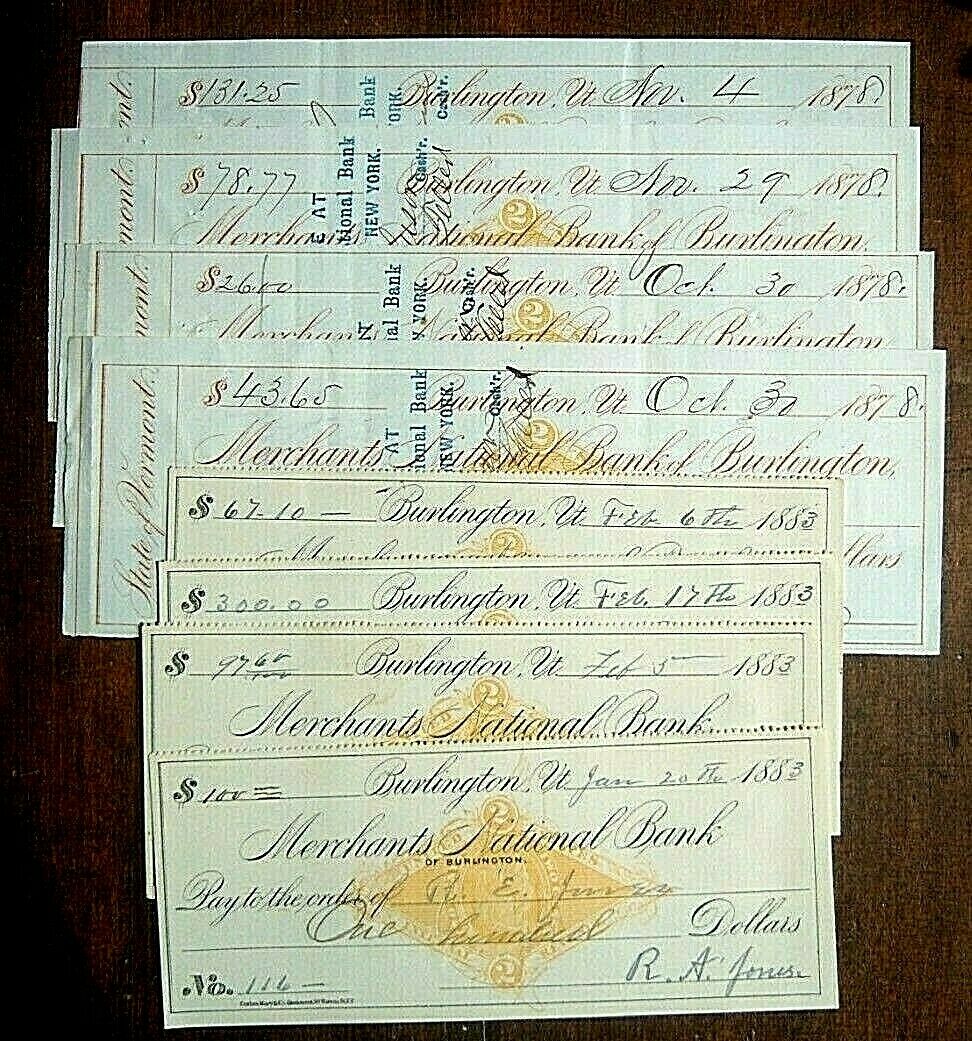 $131.25 Burlington, Vt. Nov. 4 1878.
Bank
ORK.
Cash'r.
mont.
$78.77 Burlington, Vt. Nov. 29 1878.
Merchants National Bank of Burlington.
E AT
tional Bank
NEW YORK.
Cash'r.
mont.
$26.00 Burlington, Vt. Oct. 30 1878.
Merchants National Bank of Burlington
N
al Bank
YORK.
Cash'r.
mont.
$43.65 Burlington, Vt. Oct. 30 1878.
Merchants National Bank of Burlington,
AT
ional Bank
NEW YORK.
Cash'r.
State of Vermont.
llars
$67.10 — Burlington, Vt. Feb 6th 1883
$300.00 Burlington, Vt. Feb. 17th 1883
$97 60/100 Burlington, Vt. Feb 5 1883
Merchants National Bank
$100 = Burlington, Vt. Jan 20th 1883
Merchants National Bank
OF BURLINGTON.
Pay to the order of R. E. Jones
One hundred Dollars
No. 116 — R. A. Jones.